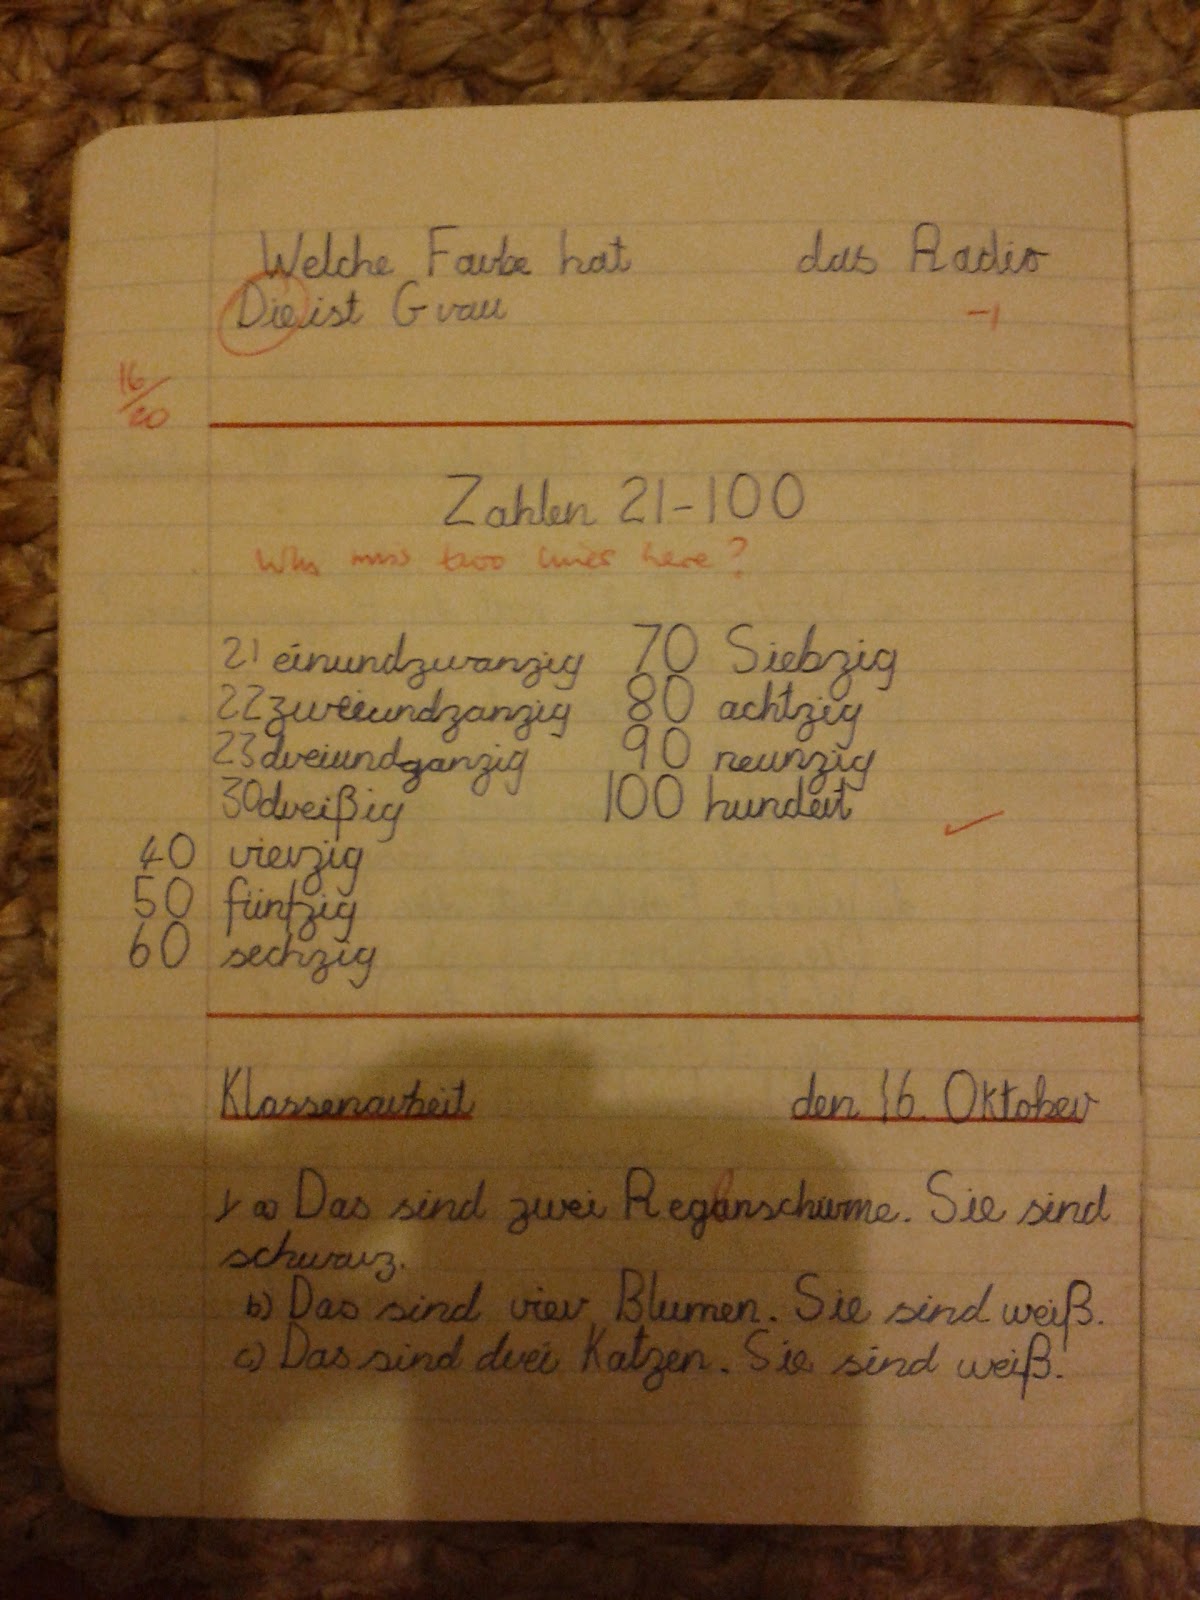 Welche Farbe hat das Radio
Die ist Grau
-1
16/20
Zahlen 21-100
Why miss two lines here?
21 einundzwanzig 70 Siebzig
22 zweiundzanzig 80 achtzig
23 dreiundganzig 90 neunzig
30 dreißig 100 hundert
40 vierzig
50 fünfzig
60 sechzig
Klassenarbeit den 16. Oktober
1 a) Das sind zwei Regenschirme. Sie sind
schwarz.
b) Das sind vier Blumen. Sie sind weiß.
c) Das sind drei Katzen. Sie sind weiß.